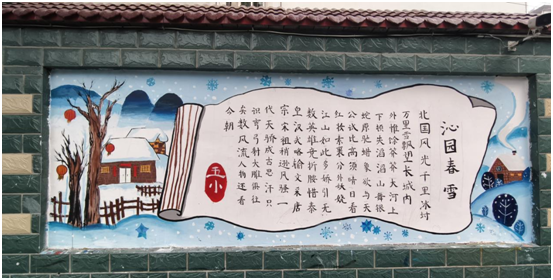 沁园春雪
北国风光千里冰封
万里雪飘望长城内
外惟馀莽莽大河上
下顿失滔滔山舞银
蛇原驰蜡象欲与天
公试比高须晴日看
红装素裹分外妖娆
江山如此多娇引无
数英雄竞折腰惜秦
皇汉武略输文采唐
宗宋祖稍逊风骚一
代天骄成吉思汗只
识弯弓射大雕俱往
矣数风流人物还看
今朝
玉小